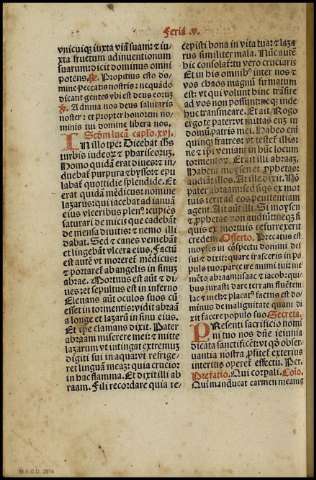 Feria .v.
vnicuiq; iuxta viã suam: ⁊ iu
xta fructum adinuentionum
suarum: dicit dominus omni
potens. Propitius esto do
mine peccatis nostris: nequãdo
dicant gentes vbi est deus eorũ
Adiuua nos deus salutaris
noster: ⁊ propter honorem no
minis tui domine libera nos.
Scḋm lucã caplo. xvj.
IN illo tpe: Dicebat ihs
turbis iudeoꝝ ⁊ phariseorum.
Homo quidã erat diues: ⁊ in
duebat purpura ⁊ bysso: ⁊ epu
labat quotidie splendide. Et
erat quidã mẽdicus: nomine
lazarus: qui iacebat ad ianuã
eius vlceribus plen⁹: cupiẽs
saturari de micis que cadebãt
de mensa diuitis: ⁊ nemo illi
dabat. Sed ⁊ canes veniebãt
⁊ lingebãt vlcera eius. Factũ
est autẽ vt moreret mẽdicus:
⁊ portaret ab angelis in sinũ
abrae. Mortuus est aũt ⁊ di
ues: ⁊ sepultus est in inferno
Eleuans aũt oculos suos cũ
esset in tormentis: vidit abraã
a longe ⁊ lazarũ in sinu eius.
Et ipe clamans dixit. Pater
abraam miserere mei: ⁊ mitte
lazarum vt intingat extremũ
digiti sui in aquã: vt refrige
ret linguã meã: quia crucior
in hac flamma. Et dixit illi ab
raam. Fili recordare quia re
cepisti bona in vita tua: ⁊ laza
rus similiter mala. Nũc autẽ
hic consolat: tu vero cruciaris
Et in his omnib⁹ inter nos ⁊
vos chaos magnũ firmatum
est: vt qui volunt hinc trãsire
ad vos non possint: neq; inde
huc transmeare. Et ait. Rogo
ergo te pater: vt mittas eum in
domũ patris mei. Habeo enim
quinq; fratres:
ne ⁊ ipi veniant in hũc locum
tormentorum. Et ait illi abraã.
Habent moysen ⁊ prophetas:
audiant illos. At ille dixit. Nõ
pater abraam: sed si quis ex mor
tuis ierit ad eos: penitentiam
agent. Ait aũt illi. Si moysen
⁊ prophetas non audiũt: neq; si
quis ex mortuis resurrexerit
credent. Offerto. Precatus est
moyses in cõspectu domini dei
sui: ⁊ dixit: quare irasceris in po
pulo tuo: parce ire anime tue: me
mẽto abraam ysaac ⁊ iacob: qui
bus iurasti dare terram fluẽtem
lac ⁊ mel: ⁊ placat⁹ factus est do
minus de malignitate quam di
xit facere populo suo. Secreta.
PResenti sacrificio nomi
ni tuo nos dñe ieiunia
dicata sanctificẽt: vt qð obser
uantia nostra ꝓfitet exterius
interius operet effectu. Per.
Prefatio. Qui corpali. Cõio.
Qui manducat carnem meam